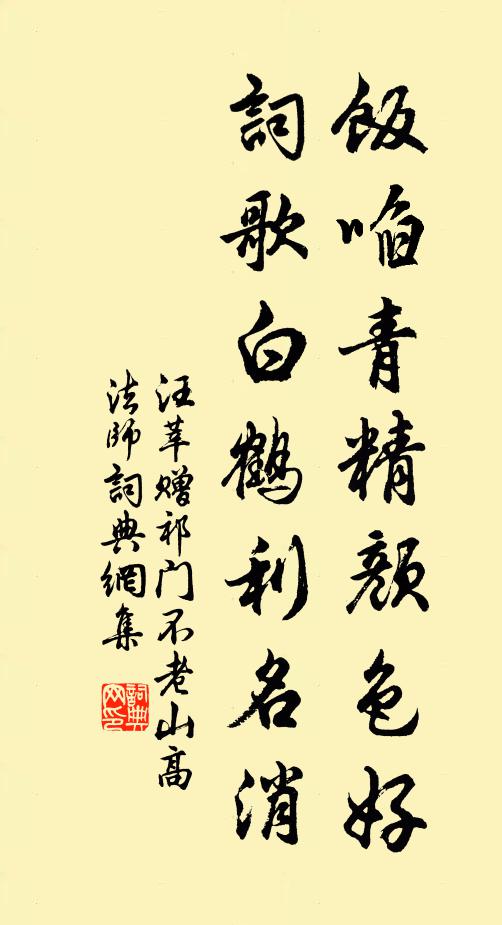 飯啗青精顏色好
詞歌白鶴利名消
汪莘赠祁门不老山高
法師詞典網集
詞典网印